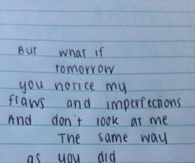 But what if
tomorrow
you notice my
flaws and imperfections
And don't look at me
The same way
as you did